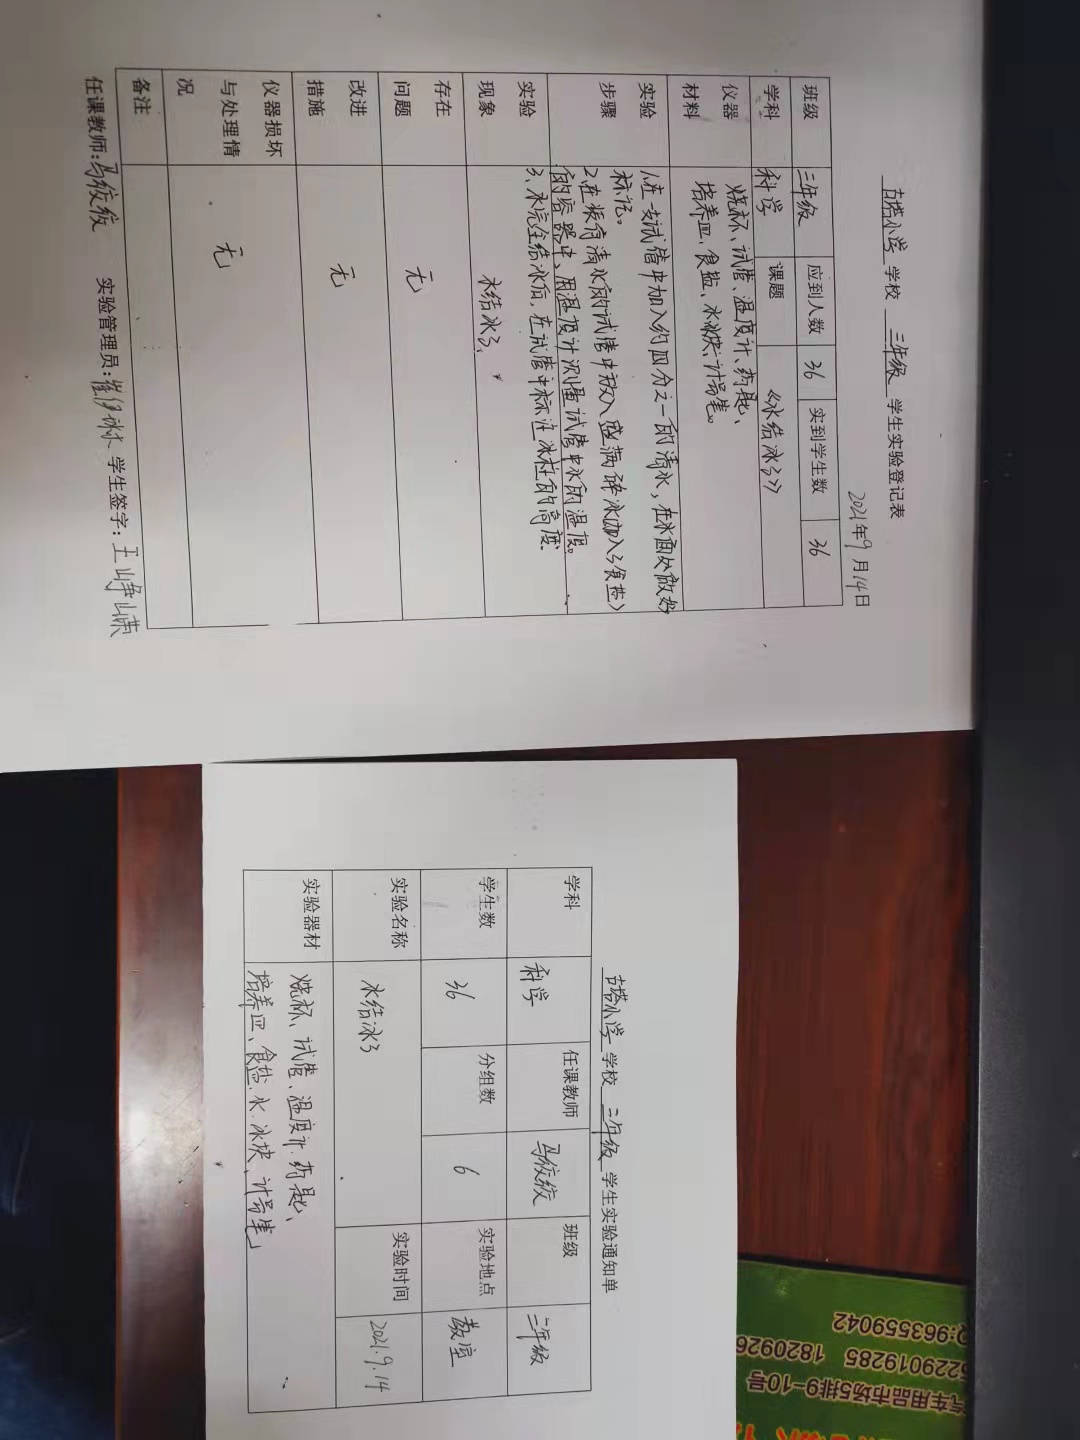 古塔小学 学校 三年级 学生实验登记表
2021年9月14日
班级 三年级 应到人数 36 实到学生数 36
学科 科学 课题 《水结冰了》
仪器材料 烧杯、试管、温度计、药匙、
培养皿、食盐、水、冰块、记号笔。
实验步骤 1.在一支试管中加入约四分之一的清水，在水面处做好
标记。
2.在装有清水的试管中放入盛满碎冰(加入了食盐)
的容器中，用温度计测量试管中水的温度。
3、水完全结冰后，在试管中标注冰柱的高度.
实验现象 水结冰了、
存在问题 无
改进措施 无
仪器损坏与处理情况 无
备注
任课教师:马绞绞 实验管理员: 学生签字: 王峥嵘
古塔小学 学校 三年级 学生实验通知单
学科 科学 任课教师 马绞绞 班级 三年级
学生数 36 分组数 6 实验地点 教室
实验名称 水结冰了 实验时间 2021.9.14
实验器材 烧杯、试管、温度计、药匙、
培养皿、食盐、水、冰块、记号笔
汽车用品市场5排9-10号
5229019285 1820926
Q:963559042